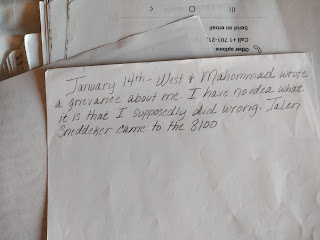 Send an email
Call +1 701-21
Other options
January 14th - West & Mahommad wrote
a grievance about me. I have no idea what
it is that I supposedly did wrong. Jalen
Sneddeker came to the 8100